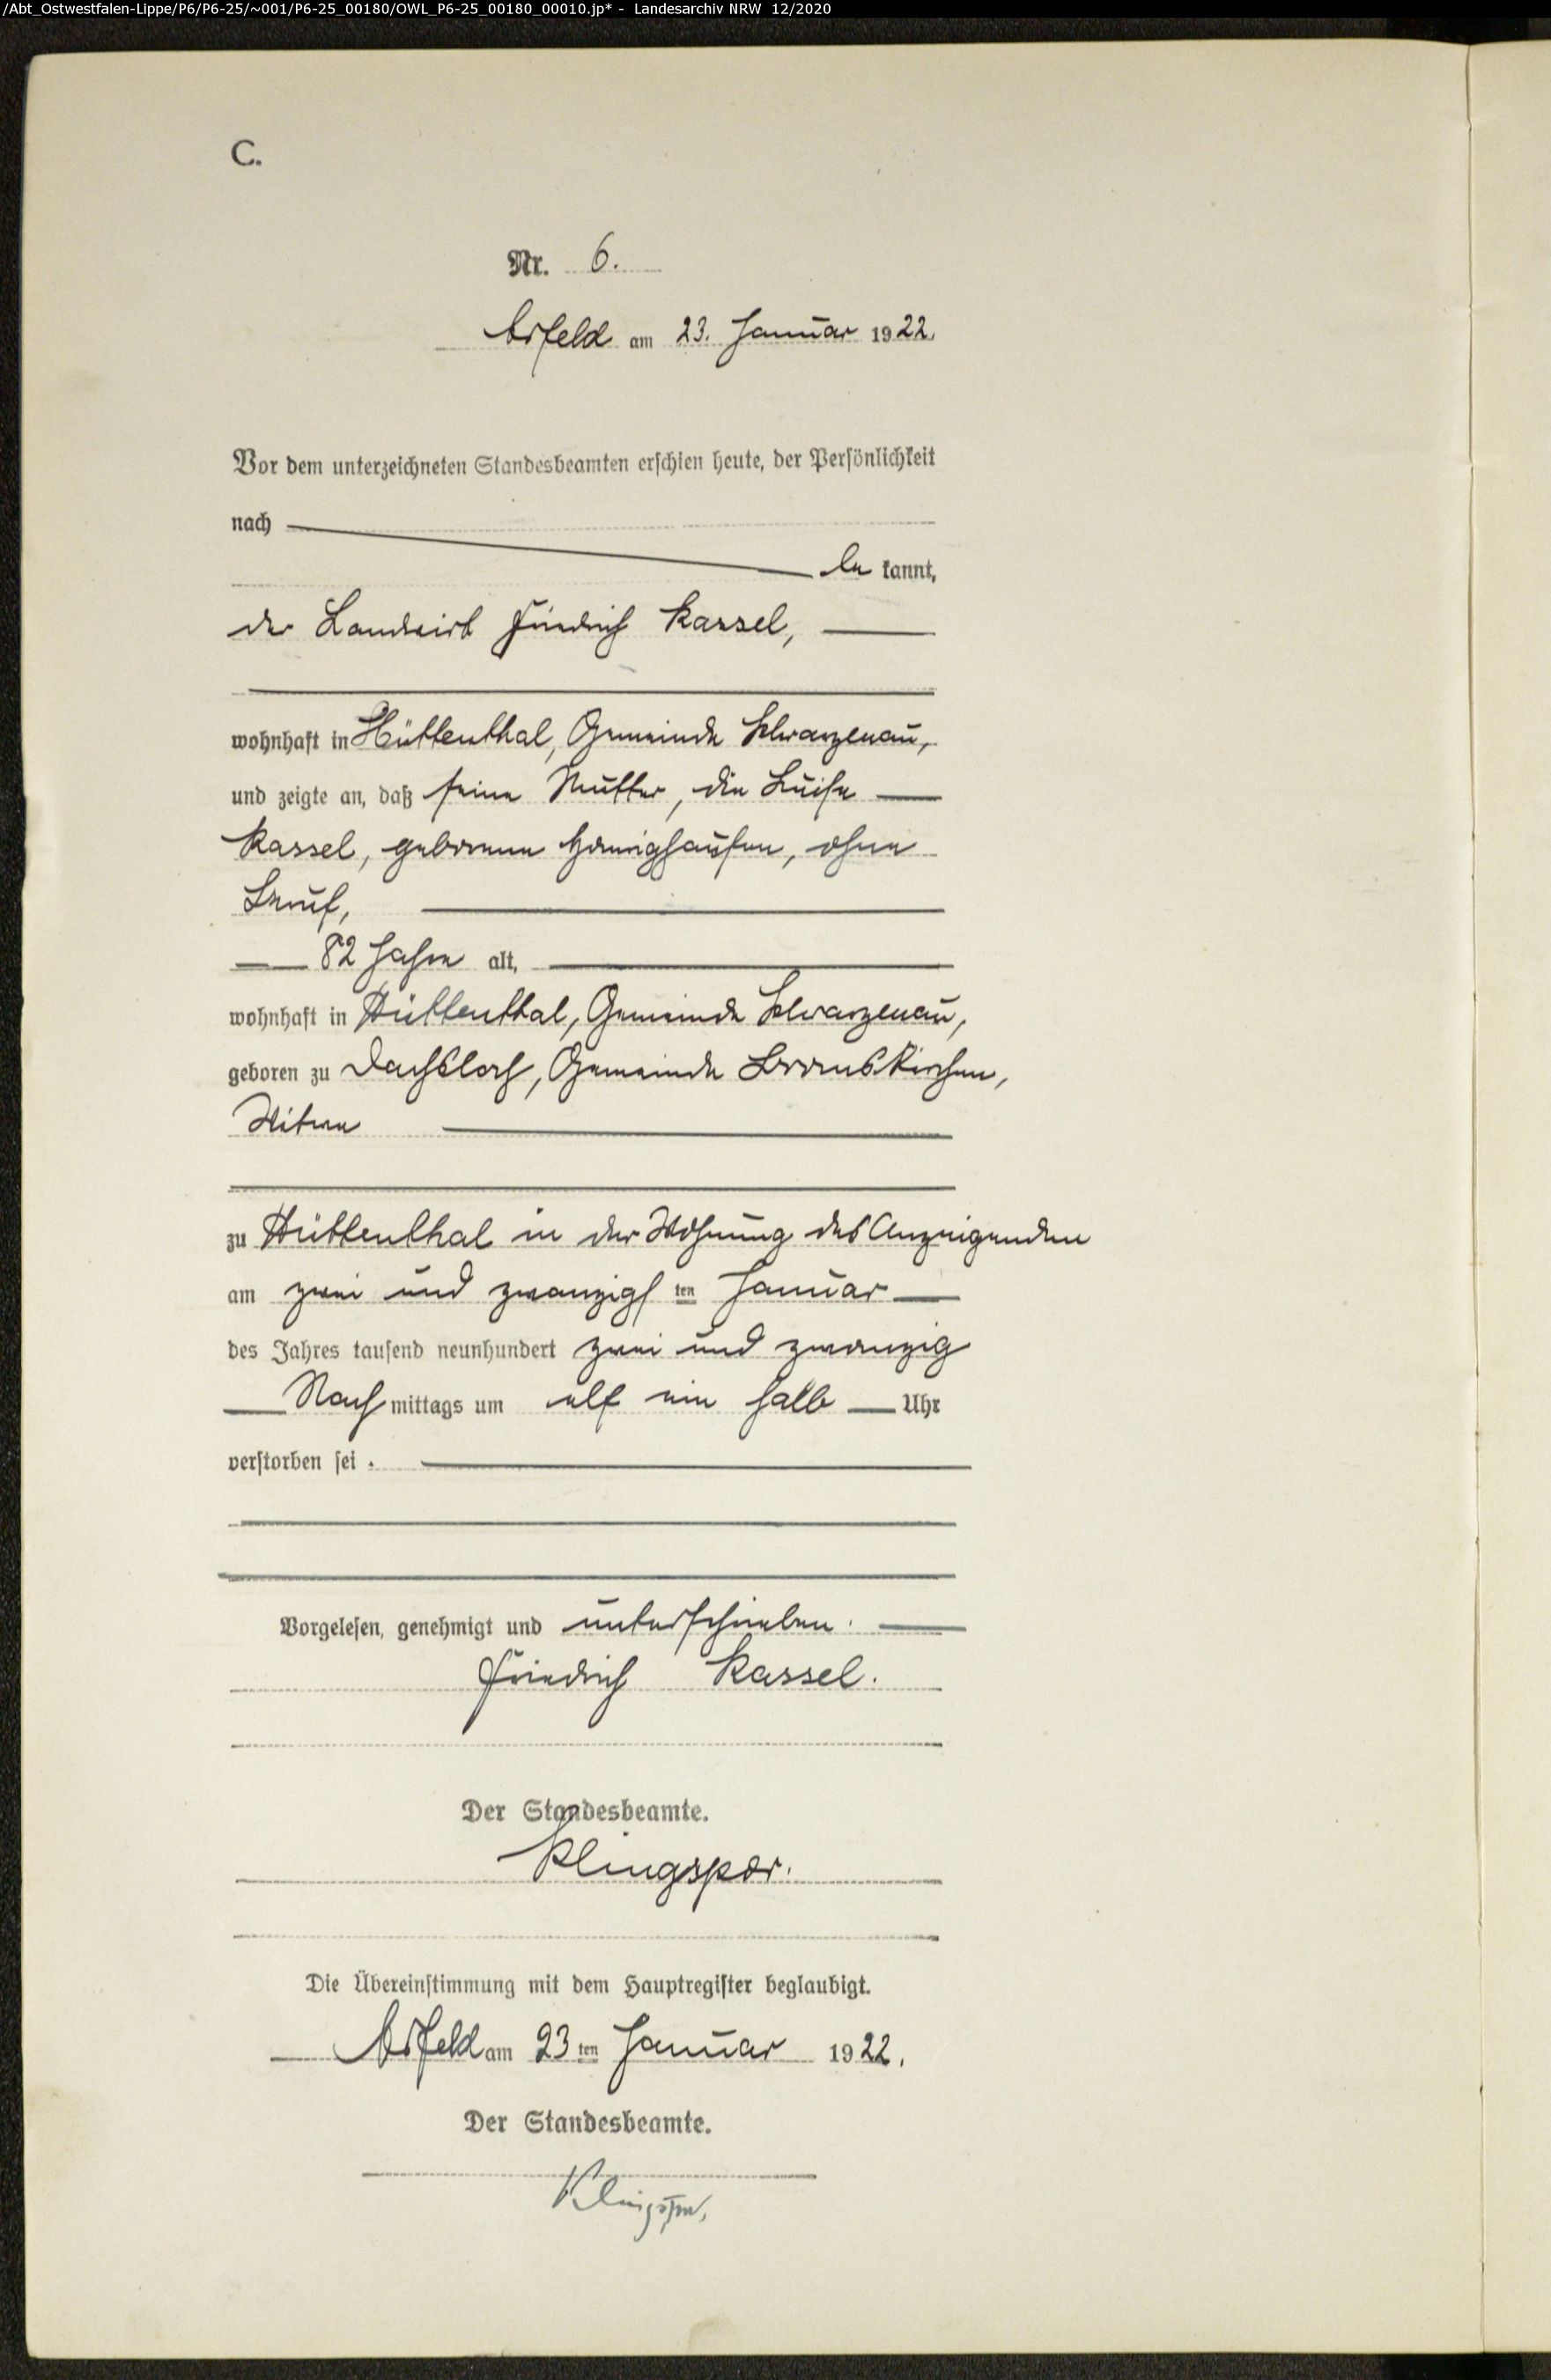 /Abt_Ostwestfalen-Lippe/P6/P6-25/~001/P6-25_00180/OWL_P6-25_00180_00010.jp* - Landesarchiv NRW 12/2020
C.
Nr. 6.
Arfeld am 23. Januar 1922.
Vor dem unterzeichneten Standesbeamten erschien heute, der Persönlichkeit
nach
be kannt,
der Landwirt Friedrich Kassel,
wohnhaft in Hüttenthal, Gemeinde Schwarzenau,
und zeigte an, daß seine Mutter, die Luise
Kassel, geborene Hömighausen, ohne
Beruf,
82 Jahre alt,
wohnhaft in Hüttenthal, Gemeinde Schwarzenau,
geboren zu Dachsloch, Gemeinde Bromskirchen,
Witwe
zu Hüttenthal in der Wohnung des Anzeigenden
am zwei und zwanzigs ten Januar
des Jahres tausend neunhundert zwei und zwanzig
Nach mittags um elf ein halb Uhr
verstorben sei.
Vorgelesen, genehmigt und unterschrieben.
Friedrich Kassel.
Der Standesbeamte.
Klingspor.
Die Übereinstimmung mit dem Hauptregister beglaubigt.
Arfeld am 23 ten Januar 1922.
Der Standesbeamte.
Klingspor,